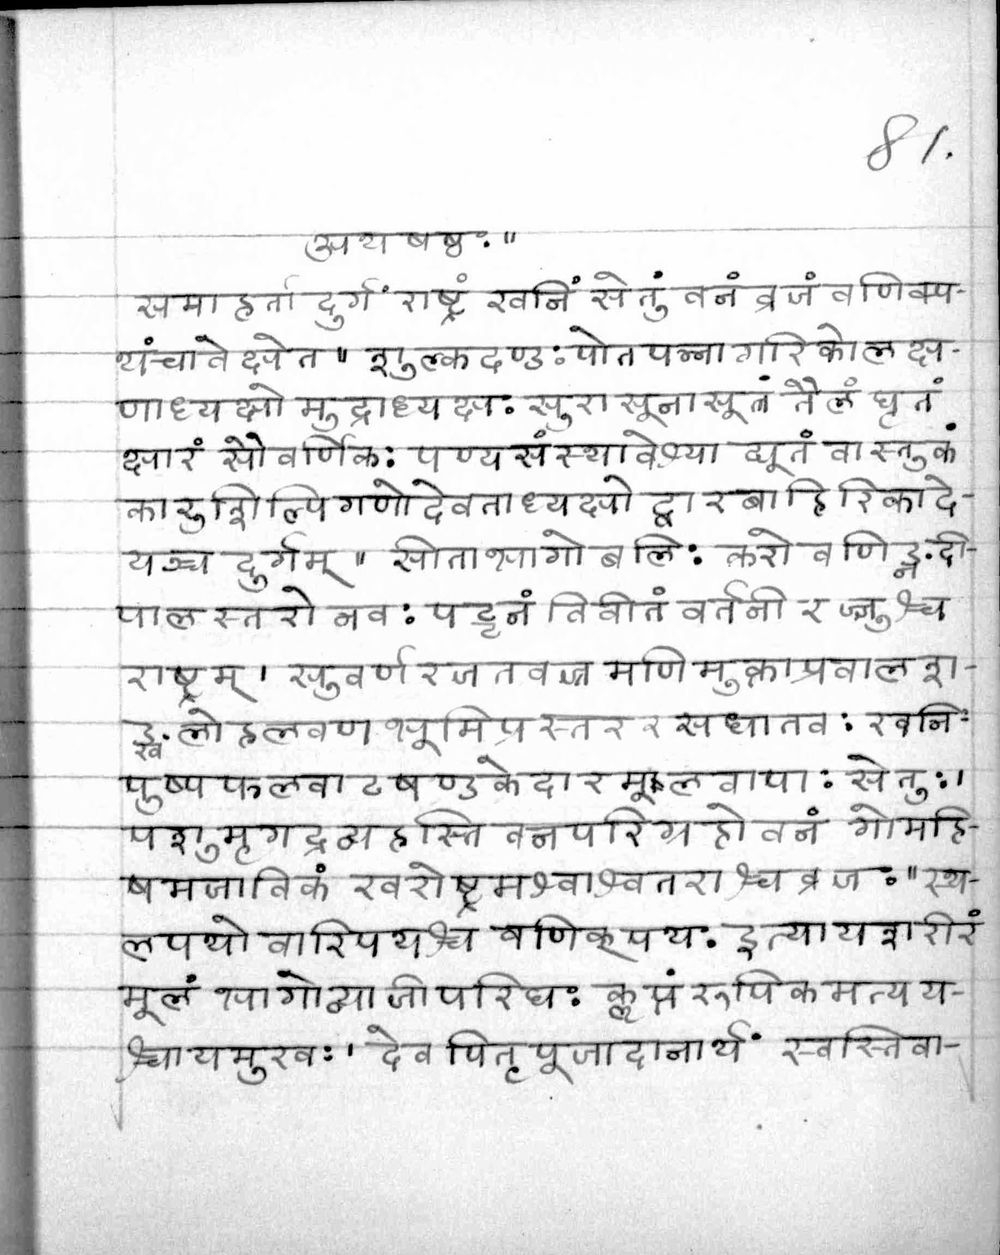 81.
अथ षष्ठः॥
समाहर्ता दुर्गं राष्ट्रं खनिं सेतुं वनं व्रजं वणिक्प-
थंचावेक्षेत॥ शुल्कदण्डः पोतपन्नागरिकोलक्ष-
णाध्यक्षो मुद्राध्यक्षः सुरासूनासूत्रं तैलं घृतं
क्षारं सौवर्णिकः पण्यसंस्थावेश्या द्यूतं वास्तुकं
कारुशिल्पिगणोदेवताध्यक्षो द्वारबाहिरिकादे-
यञ्च दुर्गम्॥ सीताभागो बलिः करो वणिङ्न.दी-
पालस्तरो नवः पट्टनं विवीतं वर्तनी रज्जुश्च
राष्ट्रम्। सुवर्णरजतवज्रमणिमुक्ताप्रवालश-
ङ्ख.लोहलवणभूमिप्रस्तररसधातवः खनिः
पुष्पफलवाटषण्डकेदारमूलवापाः सेतुः।
पशुमृगद्रव्यहस्तिवनपरिग्रहो वनं गोमहि-
षमजाविकं खरोष्ट्रमश्वाश्वतराश्च व्रजः॥ स्थ-
लपथो वारिपथश्च वणिक्पथः इत्यायशरीरं
मूलं भागोव्याजीपरिघः कॢप्तं रूपिकमत्यय-
श्चायमुखः। देवपितृपूजादानार्थं स्वस्तिवा-